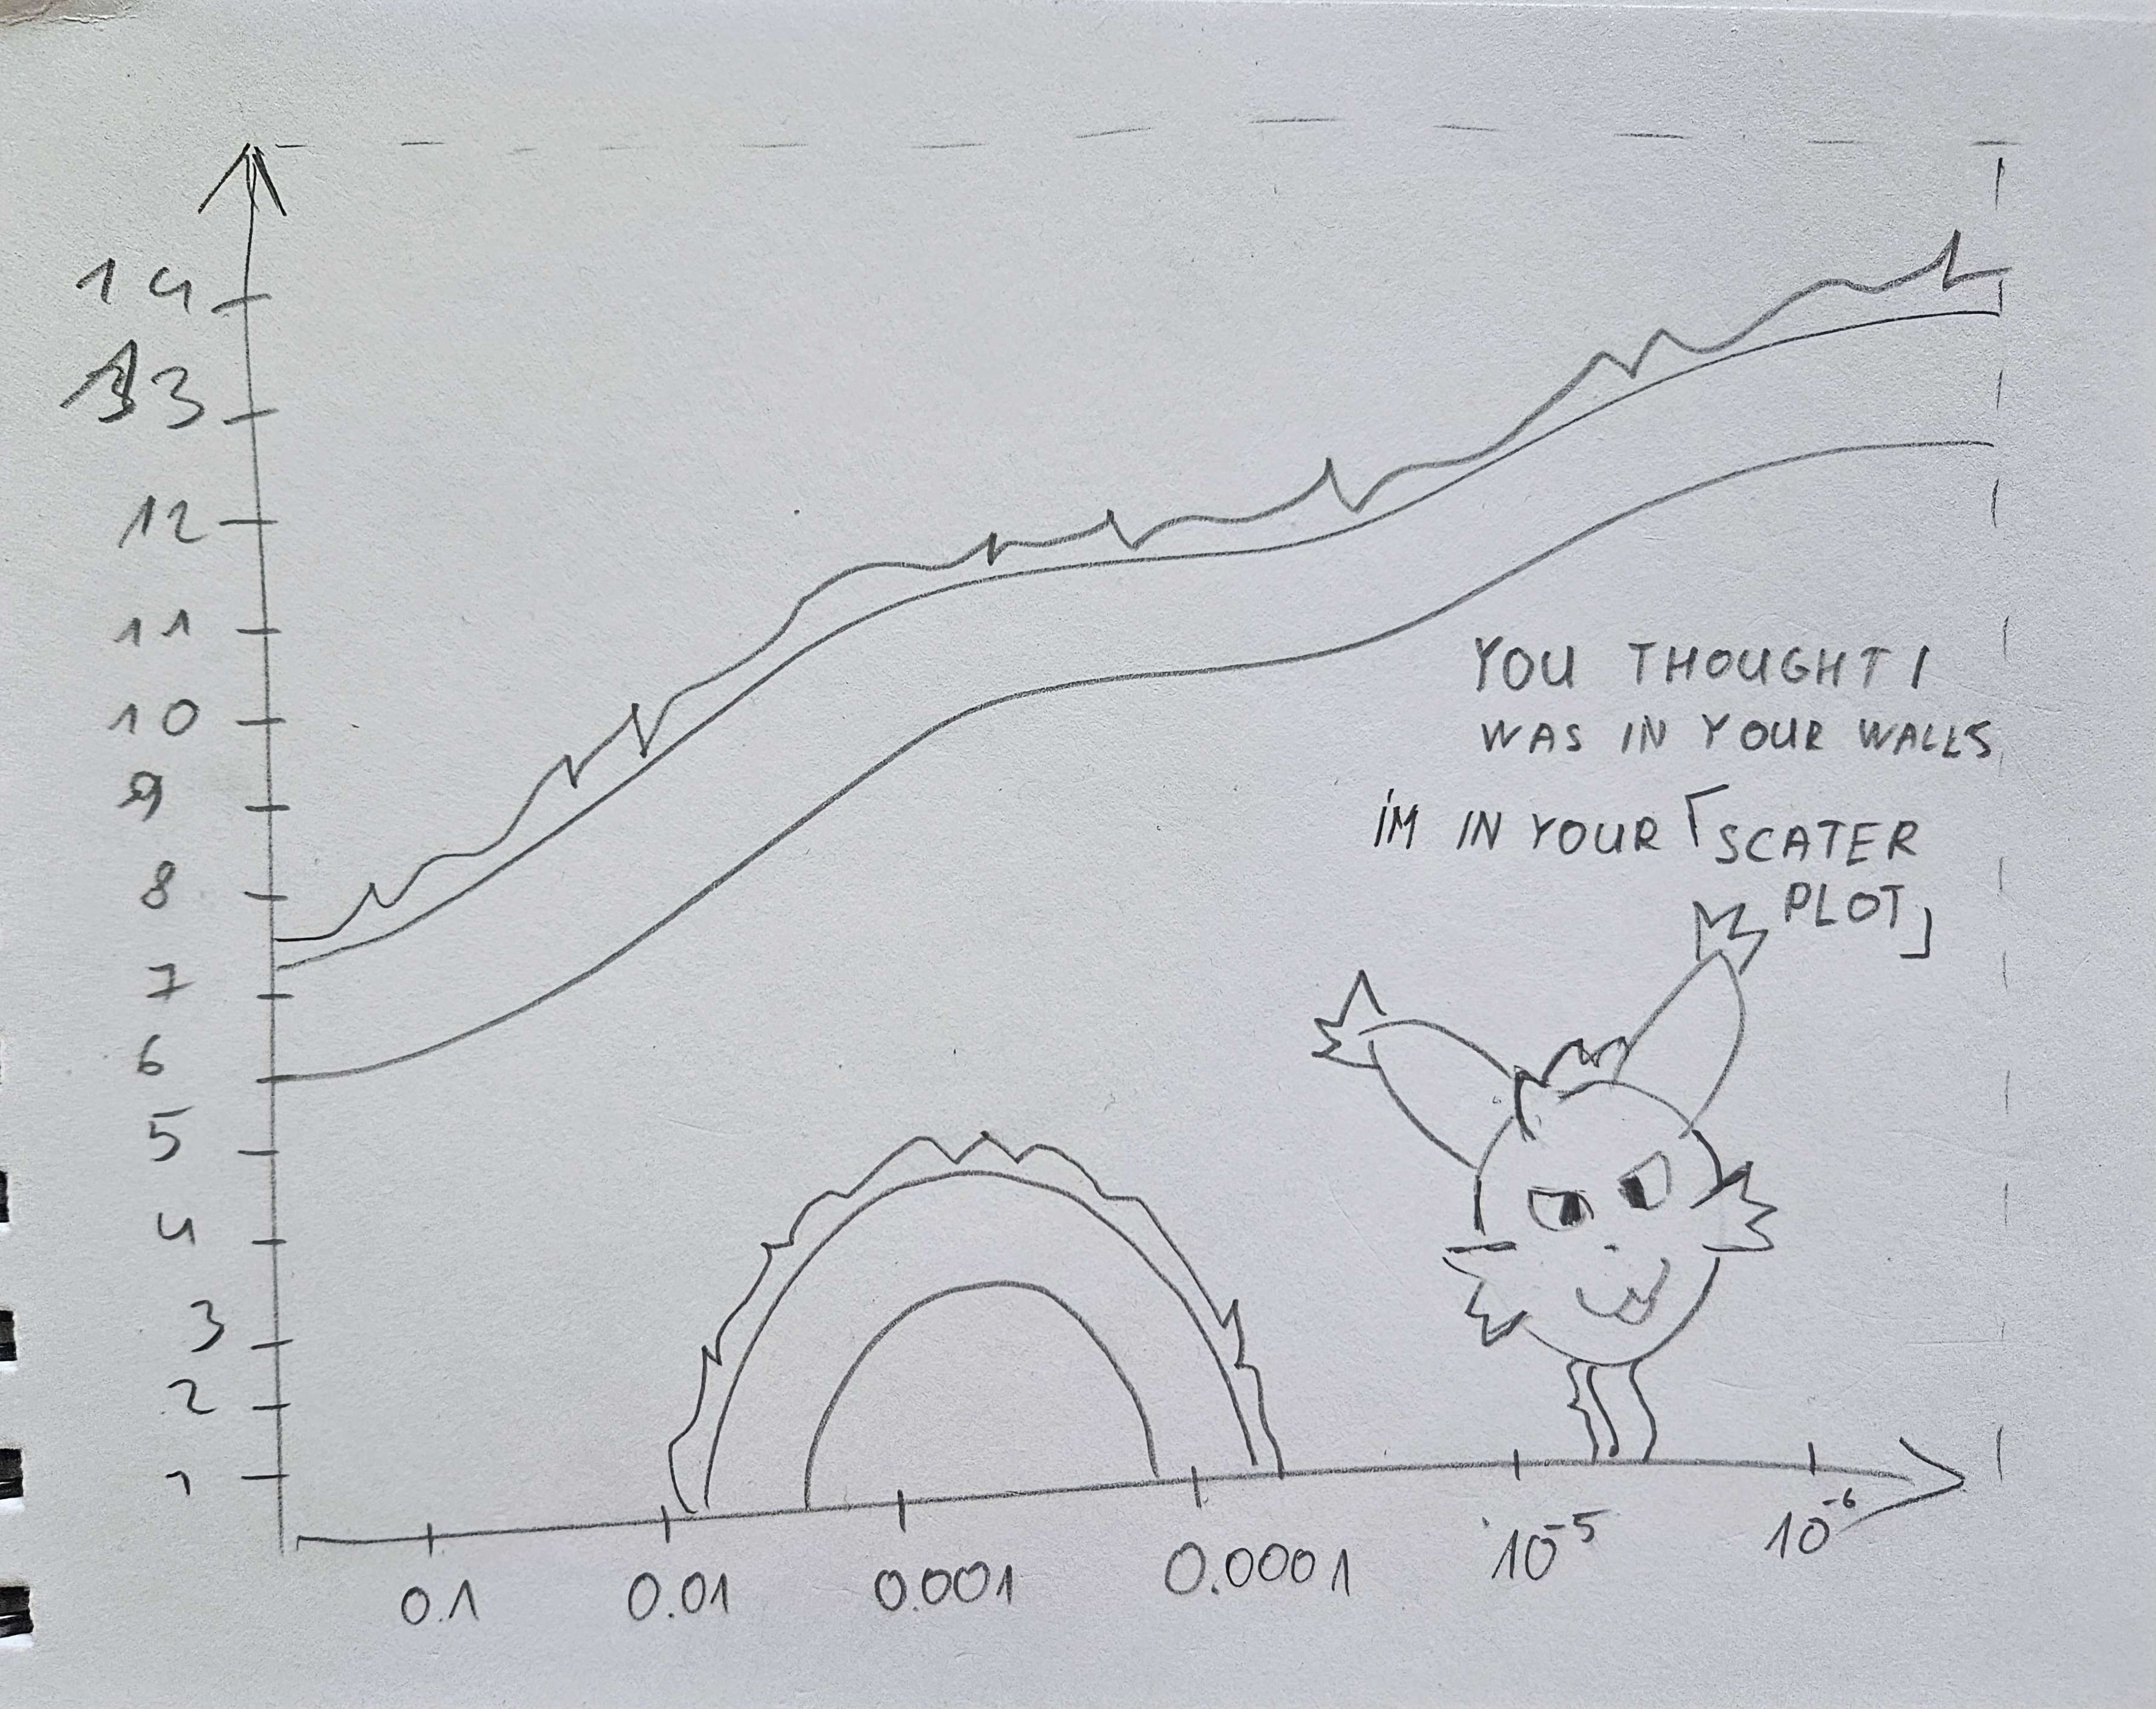 14
13
12
11
10
9
8
7
6
5
4
3
2
1
YOU THOUGHT I
WAS IN YOUR WALLS
iM IN YOUR「SCATER
PLOT」
0.1 0.01 0.001 0.0001 10⁻⁵ 10⁻⁶